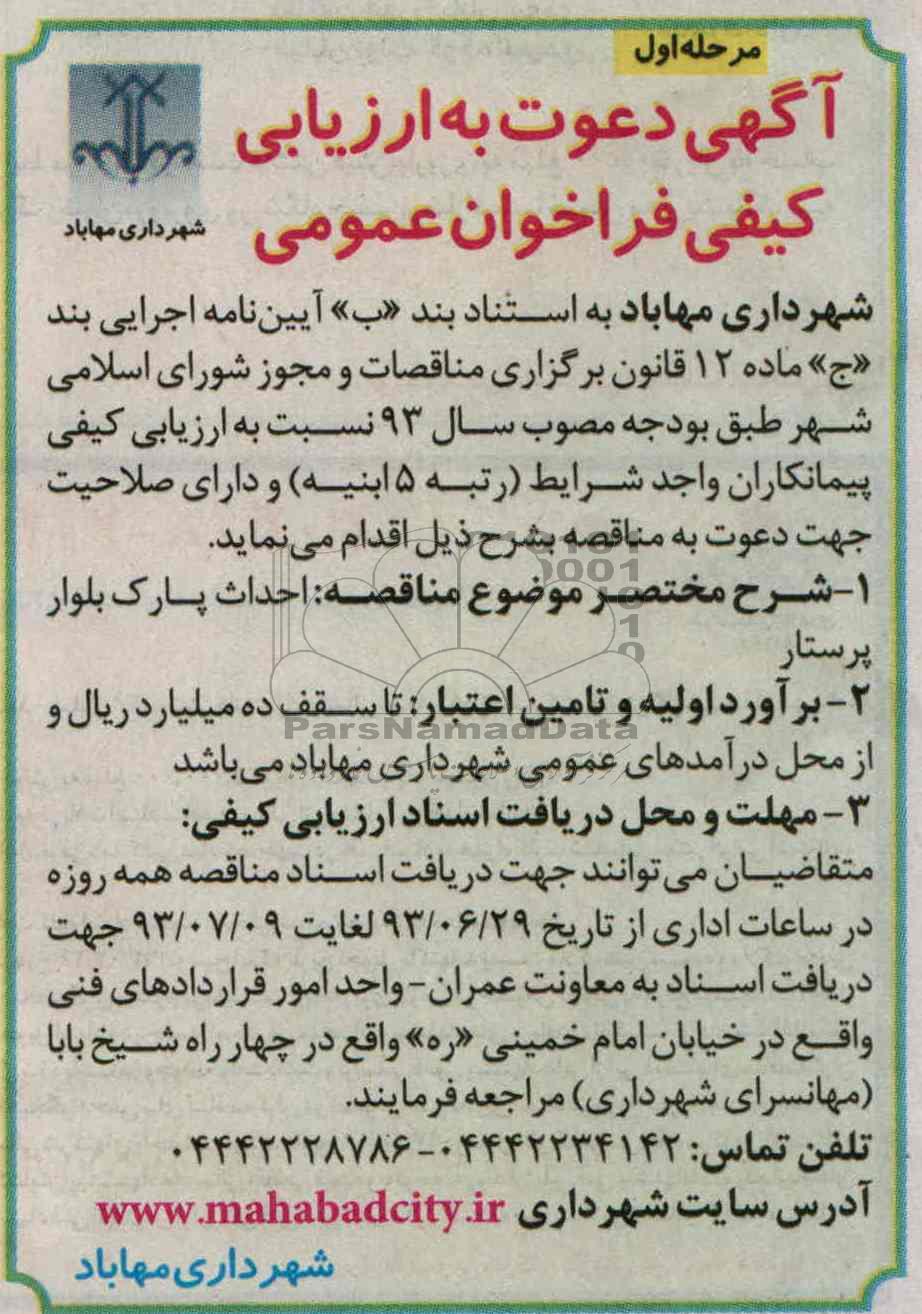 مرحله اول
آگهی دعوت به ارزیابی
کیفی فراخوان عمومی
شهرداری مهاباد
شهرداری مهاباد به استناد بند «ب» آیین‌نامه اجرایی بند
«ج» ماده ۱۲ قانون برگزاری مناقصات و مجوز شورای اسلامی
شهر طبق بودجه مصوب سال ۹۳ نسبت به ارزیابی کیفی
پیمانکاران واجد شرایط (رتبه ۵ ابنیه) و دارای صلاحیت
جهت دعوت به مناقصه بشرح ذیل اقدام می‌نماید.
۱-شرح مختصر موضوع مناقصه: احداث پارک بلوار
پرستار
۲- برآورد اولیه و تامین اعتبار: تا سقف ده میلیارد ریال و
از محل درآمدهای عمومی شهرداری مهاباد می‌باشد
ParsNamadData
۳- مهلت و محل دریافت اسناد ارزیابی کیفی:
متقاضیان می‌توانند جهت دریافت اسناد مناقصه همه روزه
در ساعات اداری از تاریخ ۹۳/۰۶/۲۹ لغایت ۹۳/۰۷/۰۹ جهت
دریافت اسناد به معاونت عمران- واحد امور قراردادهای فنی
واقع در خیابان امام خمینی «ره» واقع در چهار راه شیخ بابا
(مهانسرای شهرداری) مراجعه فرمایند.
تلفن تماس: ۰۴۴۴۲۲۳۴۱۴۲-۰۴۴۴۲۲۲۸۷۸۶
آدرس سایت شهرداری www.mahabadcity.ir
شهرداری مهاباد